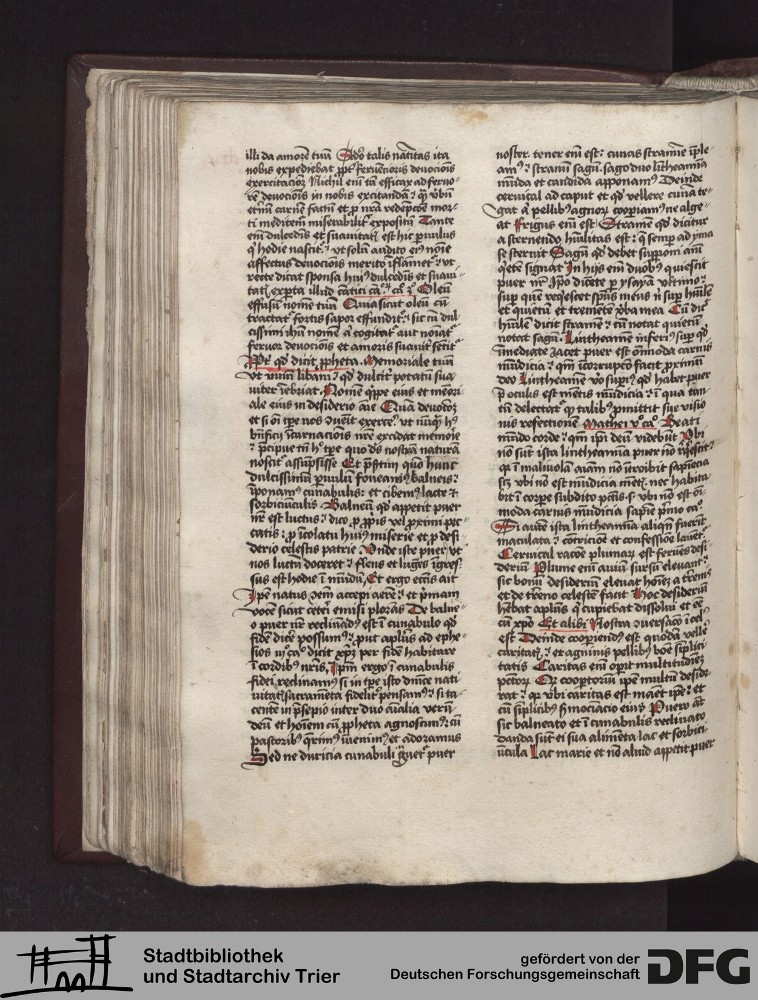 illi da amorē tuū Scdo talis natīitas ita
nobis expediebat ppt̄ feruēcioris deuocōis
exercitacōꝫ Nichil em̄ tā efficax ad feruo
rē deuocōis in nobis excitandā
etnū carnē factū et p nrā redēpcōe mor
ti meditem̄ miserabiliter expositū Tante
em̄ dulcedis et suauitatis est hic puulus
qʼ hodie nascitʳ ut solū audito eiʼ noīe
affectus deuocōis merito īflametʳ ut
recte dicat sponsa huiʼ dulcedis et suaui
tatis exp̄ta illud cātici Oleū
effusū nomē tuū Quia sicut oleū cū
tractatʳ fortis sapor effunditʳ sic cū dul
cissimū ihū nomē a cogitatʳ aut noīatʳ
feruor deuocōis et amoris suauitʳ sētitʳ
qd dicit ppheta Memoriale tuū
ut vinū libani qd dulcitʳ potatū sua
uiter īebriat Nomē qꝫ eius et memori
ale eius in desiderio aīe
et si oī tp̄e nos
bn̄ficiū īcarnacōis nrē excidat memorie
p̄cipue tn̄ hʼ tp̄e quo dn̄s nostrā naturā
noscitʳ assūpsisse Et p̄sertim quō hunc
dulcissimū puulū foueamʼ balneis
īponamʼ cunabulis et cibemʼ lacte ⁊
sorbiciunculis Balneū qd appetit puer
nr̄ est luctus dico p ppriis vel proximi pec
catis p īcolatu huiʼ miserie et p desi
derio celestis patrie Vnde iste puer ut
nos luctū doceret flens et lugēs īgres
sus est hodie ī mūdū Et ergo eccās ait
Ip̄e natus accepi aerē et p̄mam
vocē sicut ceteri emisi plorās De balne
o puer nr̄ reclināndʼ est ī cunabulo qd
fidē dicē possumʼ put aplūs ad ephe
sios dicit xp̄m per fidē habitare
ī cordibʼ nrīs Ip̄m ergo ī cunabulis
fidei reclinamʼ si in tp̄e isto dn̄ice nati
uitatʼ sacramēta fidelitʳ pensamʼ si ia
centē in p̄sepio inter duo aīalia verū
deū et hoīem cū ppheta agnoscimʼ cū
pastoribʼ q̄rimʼ īuenimʼ et adoramus
Sed ne duricia cunabuli puer
noster tener em̄ est cunas stramīe īple
amʼ stramī sagū sago duo lintheamīa
mūda et candida apponamʼ Deinde
ceruical ad caput et qd vellere
pellibʼ agnoꝝ coopiamʼ ne alge
at frigus em̄ est Stramē qd dicitur
a sternendo hūilitas est qʼ semp ad yma
se sternit Sagū qd debet suppoīi
signat In hijs em̄ duobʼ quiescit
puer nr̄ Ip̄o dicēte p ysayā vltimo
sup quē req̄escet spūs meus nisi sup hūilē
et quietū et tremētē vba mea Cū di
hūilē dicit stramē cū notat quietū
notat sagū Lintheamē inferiʼ sup qd
īmediate iacet puer est oīmoda carnis
mūdicia qm̄ īcorrupcō facit proximū
deo Lintheamē vō supiʼ qd habet puer
p oculis est mētis mūdicia ī qua tan
tū delectatʳ qʼ talibʼ pmittit sue visio
nis refectionem Mathei vʼ caʼ Beati
mūdo corde qm̄ ipī deū videbūt Vbi
nō sūt ista lintheamīa puer nō
qꝛ ī maliuolā aīam nō ītroibit sapiēcia
scꝫ vbi nō est mūdicia mētis nec habita
bit ī corpe subdito pctīs s vbi nō est oī
moda carnis mūdicia sapīe p̄mo caʼ
Si autē ista lintheamīa aliqn̄ fuerīt
maculata cōtricōe et confessiōe lauētʳ
Ceruical racōe plumaꝝ est feruēs desi
deriū Plume em̄ auiū sursū eleuant
sic bonū desideriū eleuat hoīeꝫ a t̄renis
et de t̄reno celestē facit Hoc desideriū
hēbat aplūs qʼ cupiebat dissolui et eē
cū xpō Et alibi Nostra cōuersacō ī celis
est Deinde coopiendʼ est quodā velle
caritatis et agninis pellibʼ boē simplici
tatis Caritas em̄ opit multitudinē
pctoꝝ Et coopertoriū ipē multū deside
rat qꝛ vbi caritas est manet ipē et
cū simplicibʼ smocinacio eius Puero at
sic balneato et ī cunabulis reclinato
danda sūt ei sua alimēta lac et sorbici
ūcula Lac marie et nō aliud appetit puer
Stadtbibliothek
und Stadtarchiv Trier
gefördert von der
Deutschen Forschungsgemeinschaft
DFG